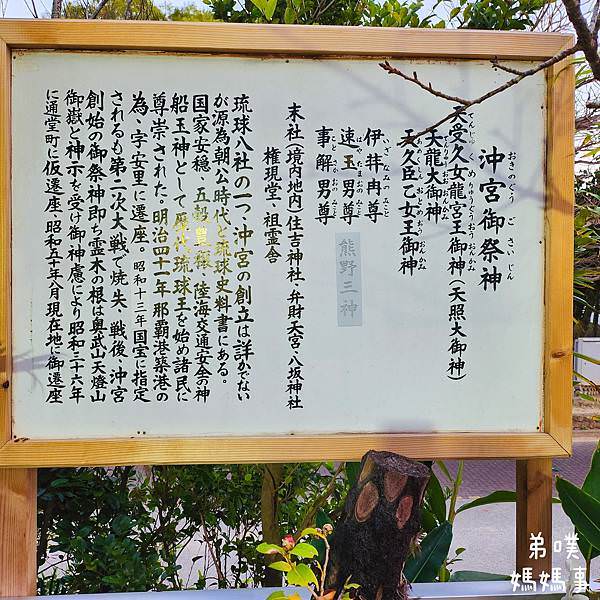 沖宮御祭神
おきのぐう ご さいじん
天受久女龍宮王御神(天照大御神)
てんじゅくめりゅうぐうおうおんかみ
天龍大御神
天久臣乙女王御神
伊弉冉尊
いざなみのみこと
速玉男尊
はやたまおのみこと
事解男尊
熊野三神
末社(境内地内)住吉神社・弁財天宮・八坂神社
権現堂・祖霊舎
琉球八社の一つ、沖宮の創立は詳かでない
が源為朝公時代と琉球史料書にある。
国家安穏、五穀豊穣、陸海交通安全の神
船玉神として歴代琉球王を始め諸民に
尊崇された。明治四十一年那覇港築港の
為、字安里に遷座。昭和十三年国宝に指定
されるも第二次大戦で焼失、戦後、沖宮
創始の御祭神即ち霊木の根は奥武山天燈山
御嶽と神示を受け御神慮により昭和三十六年
に通堂町に仮遷座・昭和五十年八月現在地に御遷座
弟噗
媽媽事